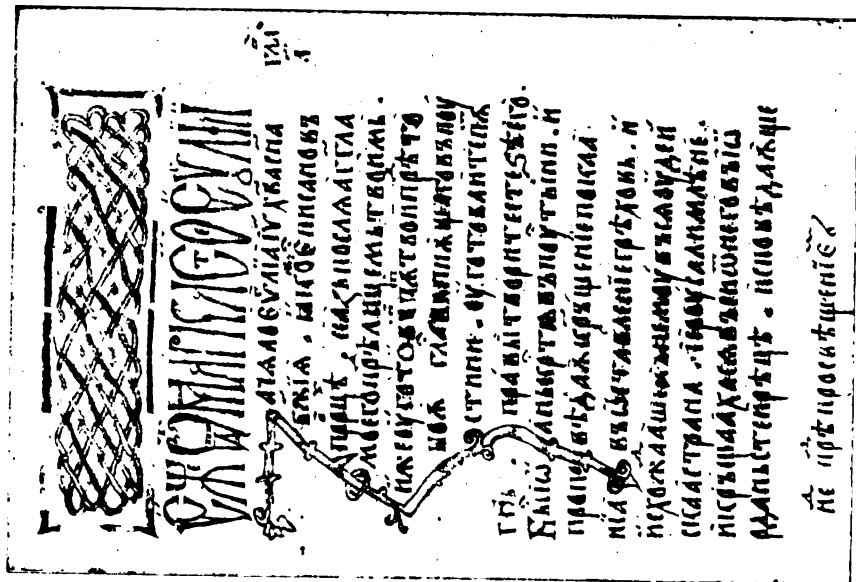 гл҃а
а҃
ачѧло еѵⷢ҇лїа іѵ х҃ва сн҃а
бж҃їа. ꙗкоже писано въ
пр҃оцѣ. се азъ посылаѧ агг҃ла
моего прѣⷣ лицемь твоимь.
иже оуготовиⷮ пѫть твои прѣⷣ то
боѫ гласъ въпиѫщаго въ поу
стыни. оуготоваите пѫть
гн҃ь. правы творите стеѕѧ его.
Бы іѡаннь крьстѧ въ поустыни. и
проповѣдаѫ кръщенїе покаа
нїа въ ѡставленїе грѣхѡвь. и
исхождааше къ немоу въсѣ іоудеи
скаа страна. и іероусалимлѣне.
и кръщаахѫсѧ въси ѿ него въ іѡ
рданьстеи рѣцѣ. исповѣдаѫще
нⷣе прⷣѣ просвѣщенїеⷨ